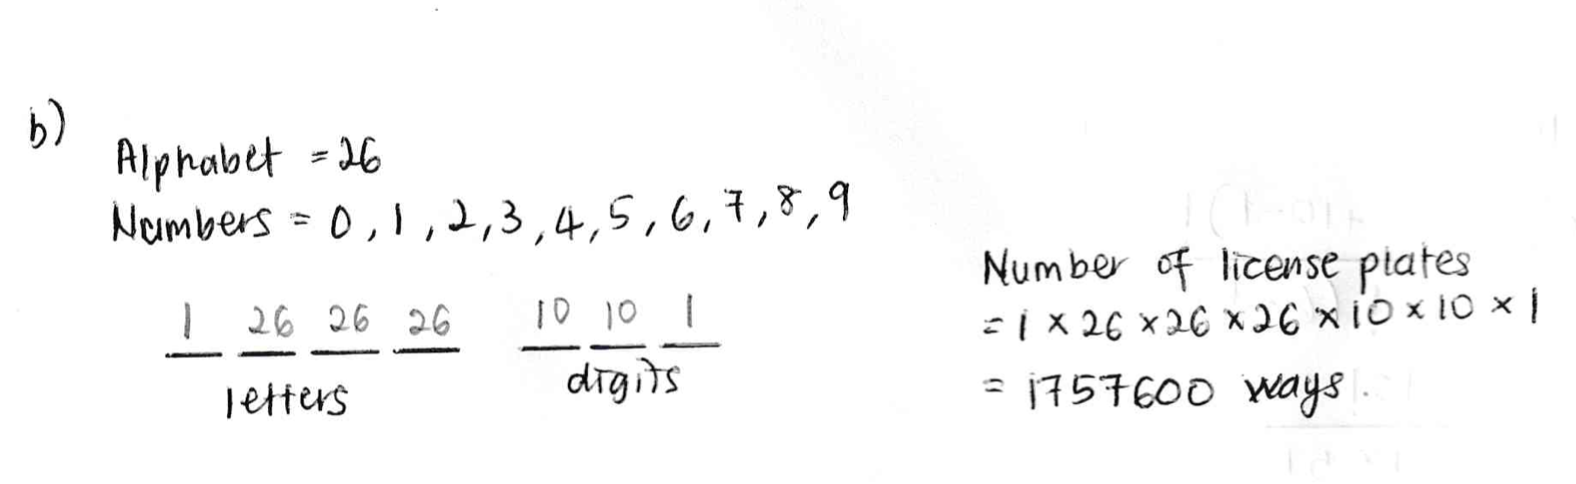 b)
Alphabet = 26
Numbers = 0, 1, 2, 3, 4, 5, 6, 7, 8, 9
1 26 26 26 10 10 1
letters digits
Number of license plates
= 1 × 26 × 26 × 26 × 10 × 10 × 1
= 1757600 ways.